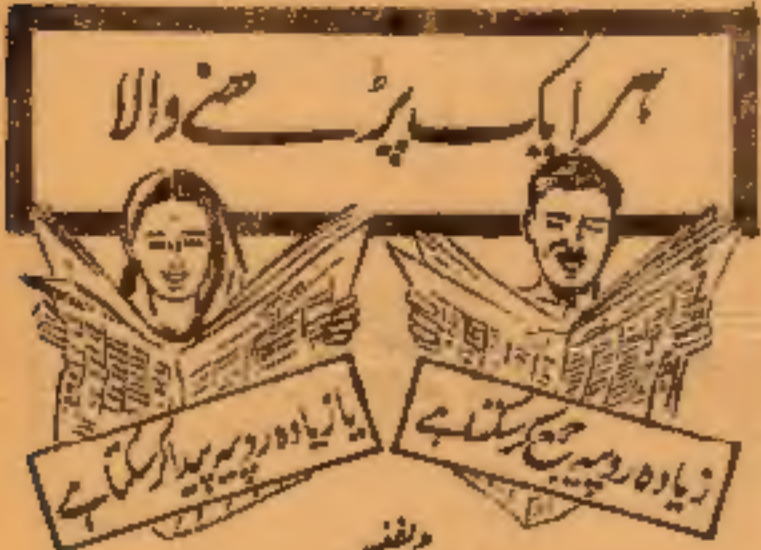 ہر ایک پڑھنے والا
زیادہ روپیہ جمع کر سکتا ہے
یا زیادہ روپیہ پیدا کر سکتا ہے